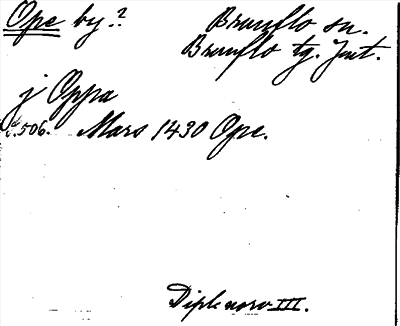 Ope by.? Brunflo sn.
Brunflo tg. Jmt.
j Oppa
s. 506. Mars 1430 Ope.
Dipl. norv III.